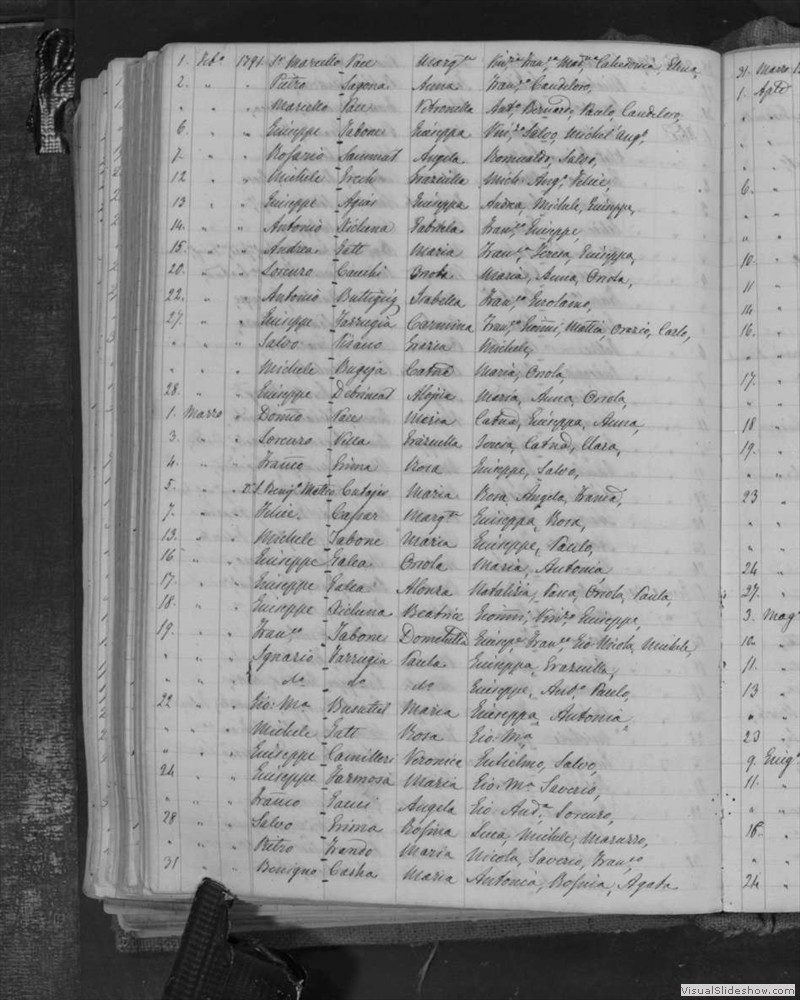 1. Feb.º 1891. Sr Marcello Pace Marg.ta
2. " " Pietro Sagona Anna Fran.co Candeloro,
" " " Marcello Pace Petronella Ant.º Bernardo, Paulo, Candeloro,
6. " " Giuseppe Tabone Giuseppa Vin.zo Salvo, Michel Ang.º
7. " " Rosario Sammut Angela Romualdo, Salvo,
12 " " Michele Grech Graziulla Mich. Ang.º Felice,
13 " " Giuseppe Agius Giuseppa Andrea, Michele, Giuseppa,
14. " " Antonio Xicluna Gabriela Fran.co Giuseppe,
15. " " Andrea Gatt Maria Fran.ca Teresa, Giuseppa,
20. " " Lorenzo Maria, Anna, Orsola,
22. " " Antonio Buttigieg Isabella Fran.co Girolamo,
27. " " Giuseppe Farrugia Carmina Mattia, Orazio, Carlo,
" " " Salvo Pisano Grazia Michele,
" " " Michele Bugeja Catna Maria, Orsola,
28. " " Giuseppe Debrincat Aloisia Maria, Anna, Orsola,
1. Marzo " Domco Pace Maria Catna, Giuseppa, Anna,
3. " " Lorenzo Vella Graziulla Teresa, Catna, Clara,
4. " " Franco Grima Rosa Giuseppe, Salvo,
5. " Benig.º Matteo Cutajar Maria Rosa, Angela, Franca,
7. " " Felice Caffar Marg.ta Giuseppa, Rosa,
13. " " Michele Tabone Maria Giuseppe, Paulo,
16. " " Giuseppe Galea Orsola Maria, Antonia
17. " " Giuseppe Galea Alonza Natalizia, Pace, Orsola, Paula,
18. " " Giuseppe Xicluna Beatrice Giuseppe,
19. " " Fran.co Tabone Dometulla Michele,
" " " Ignazio Farrugia Paula Giuseppa, Graziulla,
" " " do do do Giuseppe, Ant.º Paulo,
22 " " Gio: Ma Busuttil Maria Giuseppa, Antonia
" " " Michele Gatt Rosa Gio: Ma
" " " Giuseppe Camilleri Veronica Gulielmo, Salvo,
24 " " Giuseppe Formosa Maria Gio: Ma Saverio,
" " " Franco Gauci Angela Gio: And.a Lorenzo,
28 " " Salvo Grima Rosina Luca, Michele, Maruzzo,
" " " Pietro Maria Nicola, Saverio, Fran.co
31 " " Benigno Casha Maria Antonia, Rosina, Agata
31. Marzo
1. Aple
6.
10.
11
14
16.
17.
18
19.
23
24
27.
3. Mag.º
10.
11.
13
23
9. Giug.º
11.
16.
24
VisualSlideshow.com